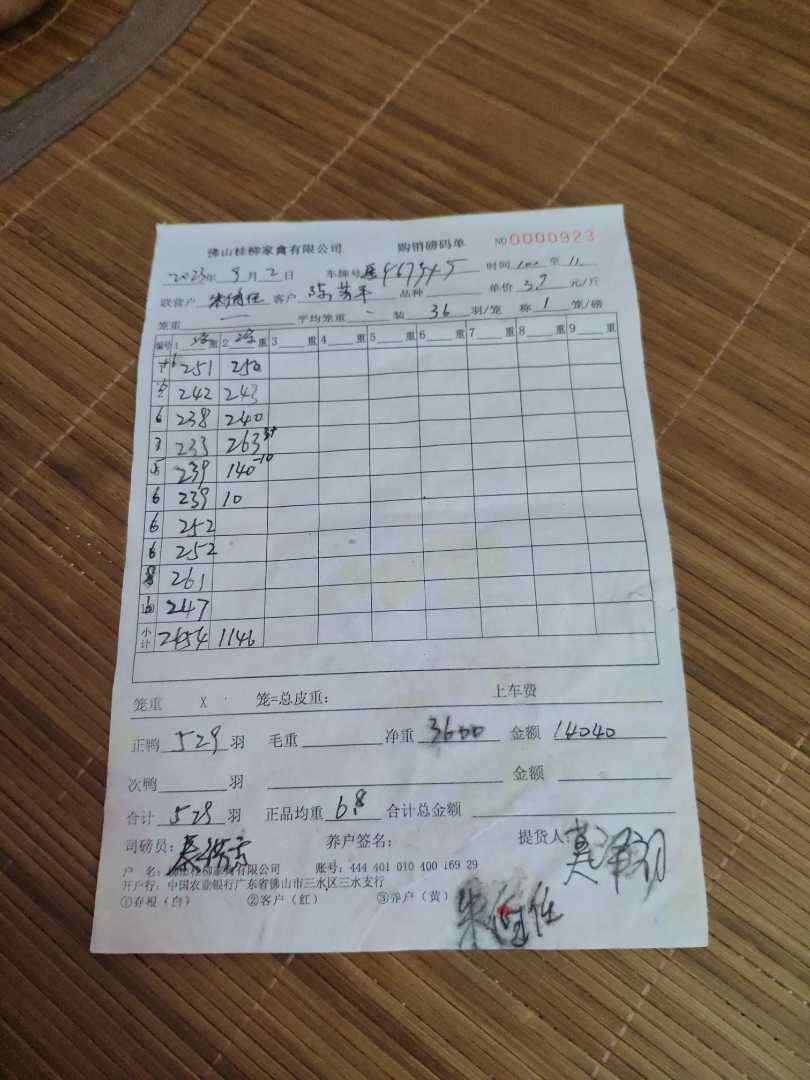 佛山桂柳家禽有限公司 购销磅码单 NO 0000923
2023年9月2日 车牌号 46735 时间 至 11
联营户 客户 陈芳平 品种 单价 3.9 元/斤
笼重 一 平均笼重 - 装 36 羽/笼 称 1 笼/磅
编号 1 重 2 重 3 重 4 重 5 重 6 重 7 重 8 重 9 重
251 250
242 243
6 238 240
3 233 263
5 239 140 -10
6 239 10
6 252
6 252
8 261
247
小计 2454 1146
笼重 X 笼=总皮重: 上车费
正鸭 529 羽 毛重 净重 3600 金额 14040
次鸭 羽 金额
合计 529 羽 正品均重 6.8 合计总金额
司磅员: 养户签名: 提货人:
户 名: 佛山桂柳家禽有限公司 账号: 444 401 010 400 169 29
开户行: 中国农业银行广东省佛山市三水区三水支行
①存根（白） ②客户（红） ③养户（黄）